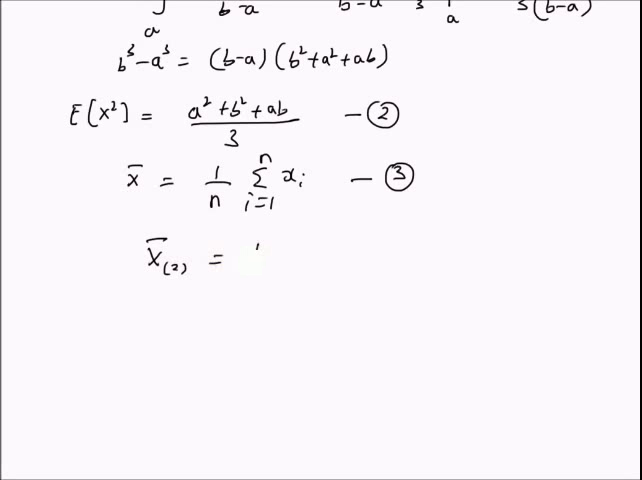 ∫ b-a b-a 3 | 3(b-a)
a a
b³-a³ = (b-a)(b²+a²+ab)
E[X²] = (a²+b²+ab)/3 — ②
x̄ = 1/n Σ_{i=1}^{n} x_i — ③
X̄_(2) =